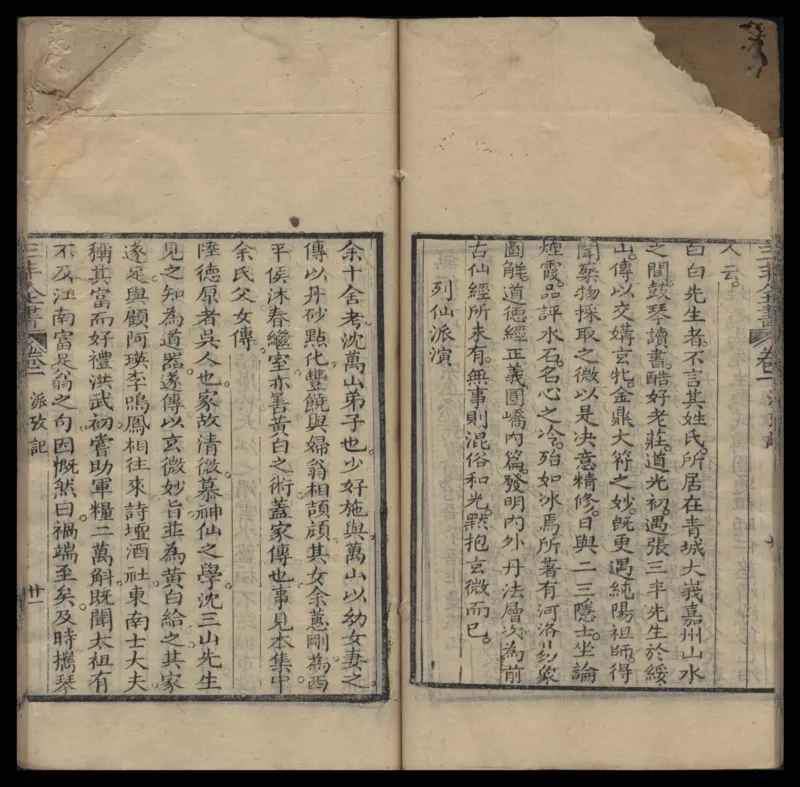 三丰全書 卷一 派攷記
人云。
白白先生者。不言其姓氏。所居在青城大峩嘉州山水
之間。鼓琴讀書。酷好老莊。道光初。遇張三丰先生於綏
山。傳以交媾玄牝。金鼎大符之妙。旣更遇純陽祖師。得
聞藥物採取之微。以是决意精修。日與二三隱士。坐論
煙霞。品評水石。名心之冷。殆如冰焉。所著有河洛易象
圖解。道德經正義。圓嶠內篇。發明內外丹法層次。為前
古仙經所未有。無事則混俗和光。默抱玄微而已。
列仙派演
余十舍者。沈萬山弟子也。少好施與。萬山以幼女妻之。
傳以丹砂點化。豐饒與婦翁相頡頏。其女余蕙剛。為西
平侯沐春繼室。亦善黃白之術。蓋家傳也。事見本集中
余氏父女傳。
陸德原者。吳人也。家故清微。慕神仙之學。沈三山先生
見之。知為道器。遂傳以玄微妙旨。並為黃白給之。其家
遂足。與顧阿瑛李鳴鳳相往來。詩壇酒社。東南士大夫
稱其富而好禮。洪武初。嘗助軍糧二萬斛。既聞太祖有
不及江南富足翁之句。因慨然曰。禍端至矣。及時攜琴
三丰全書 卷一 派攷記 廿一